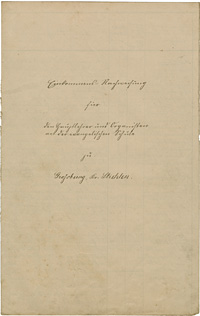 Einkommens-Nachweisung
für
den Hauptlehrer und Organisten
an der evangelischen Schule
zu